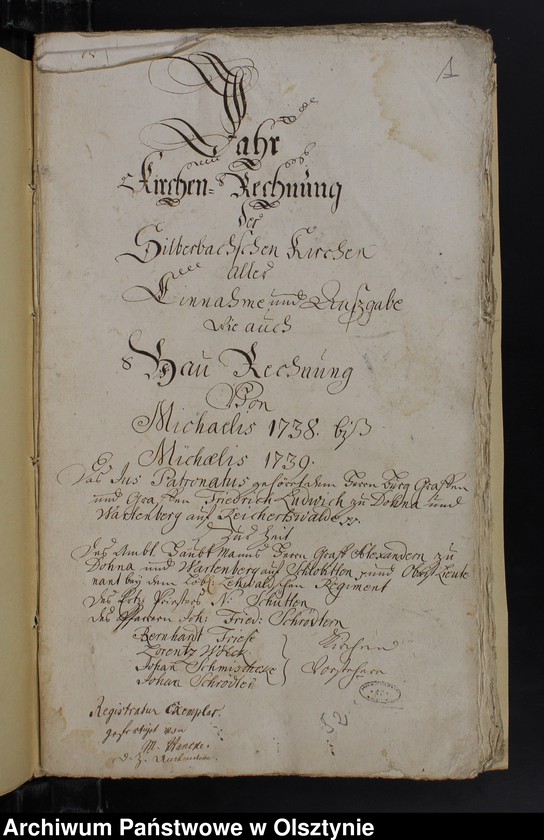 1
Jahr
Kirchen=Rechnung
der
Silberbachschen Kirchen
aller
Einnahme und Außgabe
wie auch
Bau Rechnung
Von
Michaelis 1738. biß
Michaelis 1739.
Das Jus Patronatus gehöret dem Herrn Burg Graffen
und Graffen Friedrich Ludwich zu Dohna und
Wartenberg auf Reichertswalde
Zur Zeit
Des Ambt Haubt Manns Herrn Graff Alexandern zu
Dohna und Wartenberg auf Schlobitten und Obrist Lieute
nant bey dem Löbl: Regiment
Des Ertz Priesters Schütten
des Pfarrern Joh: Fried: Schrödtern
Bernhardt Friese
Lorentz
Johan Schmischcke
Johan Schrödter
Kirchen
Vorstehern
52
Registratur Exemplar.
von
Archiwum Państwowe w Olsztynie